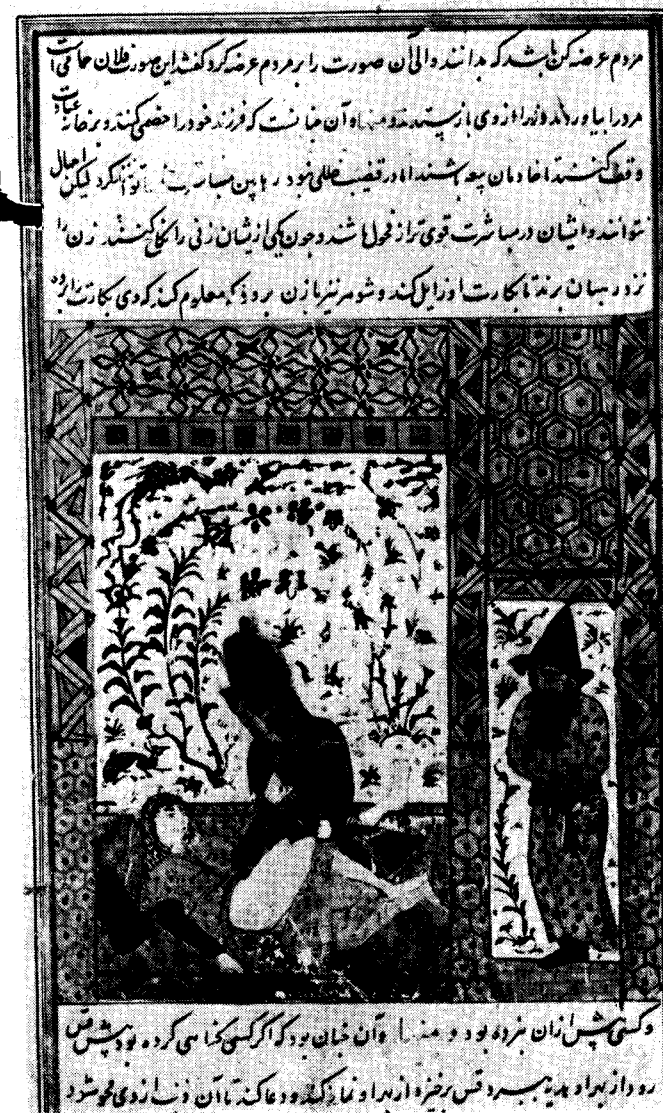 مردم عرضه کن باشد که بدانند والی آن صورت را بر مردم عرضه کرد گفتند این صورت فلان حامی است
مرد را بیاورند و از وی باز ستدند و منها و آن چنانست که فرزند خود را خصی کنند و بر خانه عبادت
وقف کنند تا خادمان
نتوانند و ایشان در مباشرت قوی‌تر از فحول باشند و چون یکی از ایشان زنی را نکاح کند زن را
نزد رهبان برند تا بکارت او زایل کند و شوهر نیز با زن برود که معلوم کند که وی بکارت زایل
و کسی پیش از آن نبرده بود و منها و آن چنان بود که اگر کسی گناهی کرده بود پیش قس
رود از بهر او هدیه ببرد و قس برخیزد از بهر او نماز کند و دعا کند تا آن ذنب از وی محو شود